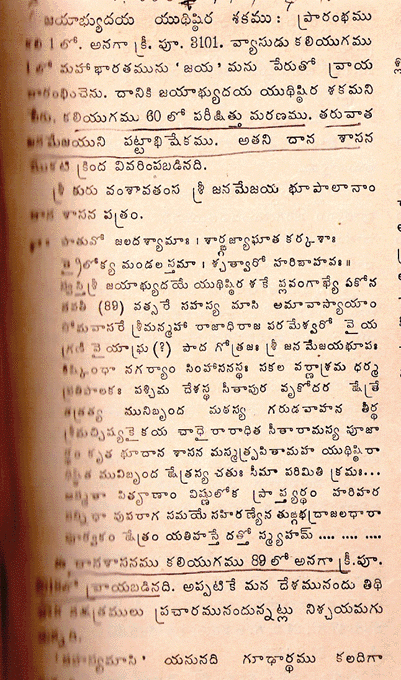 జయాభ్యుదయ యుధిష్ఠిర శకము : ప్రారంభము
1 లో. అనగా క్రీ. పూ. 3101. వ్యాసుడు కలియుగము
లో మహాభారతమును ‘జయ’ మను పేరుతో వ్రాయ
దానికి జయాభ్యుదయ యుధిష్ఠిర శకమని
కలియుగము 60 లో పరీక్షిత్తు మరణము. తరువాత
జనమేజయుని పట్టాభిషేకము. అతని దాన శాసన
క్రింద వివరింపబడినది.
శ్రీ కురు వంశావతంస శ్రీ జనమేజయ భూపాలానాం
దాన శాసన పత్రం.
పాతువో జలదశ్యామాః । శార్ఙ్గజ్యాఘాత కర్కశాః
త్రైలోక్య మండల స్తమా । శ్చత్వారో హరిబాహవః ॥
స్వస్తిశ్రీ జయాభ్యుదయే యుధిష్ఠిర శకే ప్లవంగాఖ్యే ఏకోన
నవతి (89) వత్సరే సహస్య మాసి అమావాస్యాయాం
సోమవాసరే శ్రీమన్మహా రాజాధిరాజ పరమేశ్వరో వైయ
వైయాఘ్ర (?) పాద గోత్రజః శ్రీ జనమేజయభూపః
కిష్కింధా నగర్యాం సింహాసనస్థః సకల వర్ణాశ్రమ ధర్మ
ప్రతిపాలకః పశ్చిమ దేశస్థ సీతాపుర వృకోదర క్షేత్రే
తత్రత్య మునిబృంద మఠస్య గరుడవాహన తీర్థ
శ్రీమచ్ఛిష్యకైకయ చాధైరారాధిత సీతారామస్య పూజా
కృత భూదాన శాసన మస్మత్ప్రపితామహ యుధిష్ఠిరా
మునిబృంద క్షేత్రస్య చతుః సీమా పరిమితి క్రమః...
పితృాణాం విష్ణులోక ప్రాప్త్యర్థం హరిహర
పువరాగ సమయే సహిరణ్యేన తుఙ్గభద్రాజలధారా
క్షేత్రం యతిహస్తే దత్తో స్మ్యహమ్ .... ... ... ...
దానశాసనము కలియుగము 89 లో అనగా క్రీ.పూ.
వ్రాయబడినది. అప్పటికే మన దేశమునందు తిథి
ప్రచారమునందున్నట్లు నిశ్చయమగు
‘సహస్యమాసి’ యనునది గూఢార్థము కలదిగా